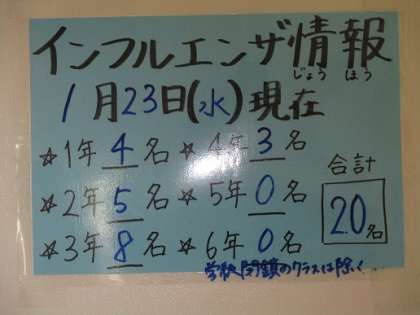 インフルエンザ情報
じょう ほう
1月23日(水)現在
☆1年 4名 ☆4年 3名
☆2年 5名 ☆5年 0名
☆3年 8名 ☆6年 0名
合計
20名
学級閉鎖のクラスは除く…